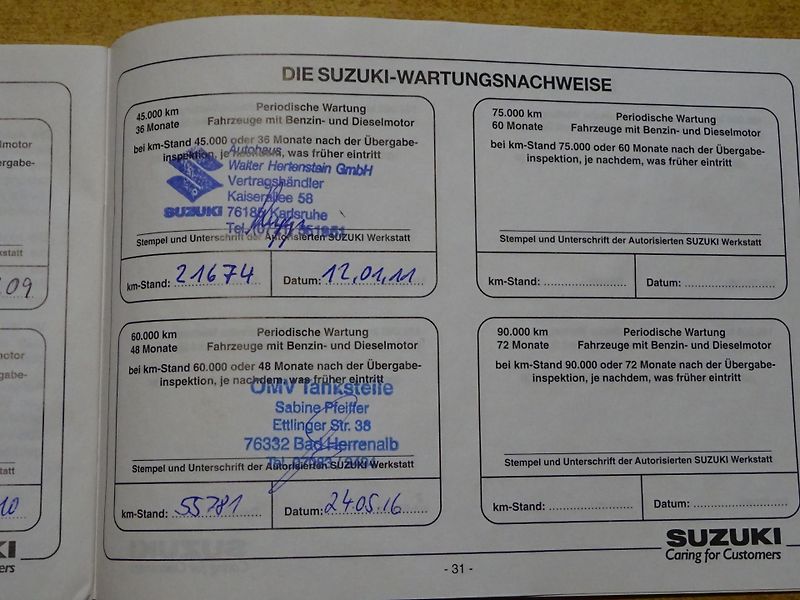 DIE SUZUKI-WARTUNGSNACHWEISE
45.000 km
36 Monate
Periodische Wartung
Fahrzeuge mit Benzin- und Dieselmotor
bei km-Stand 45.000 oder 36 Monate nach der Übergabe-
inspektion, je nachdem, was früher eintritt
Autohaus
Walter Hertenstein GmbH
Vertragshändler
Kaiserallee 58
SUZUKI 76185 Karlsruhe
Tel.
Stempel und Unterschrift der Autorisierten SUZUKI Werkstatt
km-Stand: 21674 Datum: 12.01.11
75.000 km
60 Monate
Periodische Wartung
Fahrzeuge mit Benzin- und Dieselmotor
bei km-Stand 75.000 oder 60 Monate nach der Übergabe-
inspektion, je nachdem, was früher eintritt
Stempel und Unterschrift der Autorisierten SUZUKI Werkstatt
km-Stand: Datum:
60.000 km
48 Monate
Periodische Wartung
Fahrzeuge mit Benzin- und Dieselmotor
bei km-Stand 60.000 oder 48 Monate nach der Übergabe-
inspektion, je nachdem, was früher eintritt
OMV Tankstelle
Sabine Pfeiffer
Ettlinger Str. 38
76332 Bad Herrenalb
Tel.
Stempel und Unterschrift der Autorisierten SUZUKI Werkstatt
km-Stand: 55781 Datum: 24.05.16
90.000 km
72 Monate
Periodische Wartung
Fahrzeuge mit Benzin- und Dieselmotor
bei km-Stand 90.000 oder 72 Monate nach der Übergabe-
inspektion, je nachdem, was früher eintritt
Stempel und Unterschrift der Autorisierten SUZUKI Werkstatt
km-Stand: Datum:
SUZUKI
Caring for Customers
- 31 -